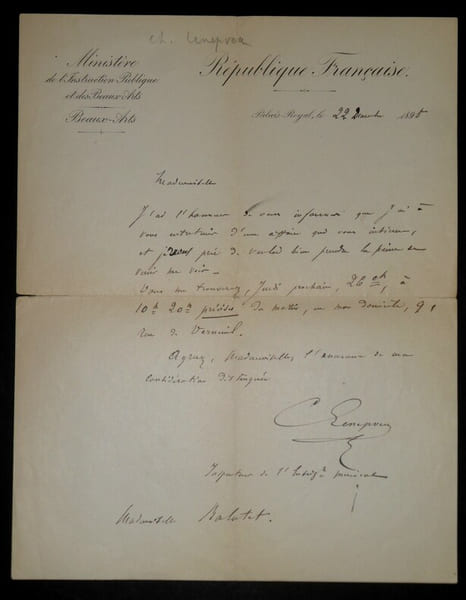 Ch. Lenepveu
Ministère
de l'Instruction Publique
et des Beaux-Arts
Beaux-Arts
République Française.
Palais-Royal, le 22 Décembre 1895
Mademoiselle
J'ai l'honneur de vous informer que j'ai à
vous entretenir d'une affaire qui vous intéresse,
et je vous prie de vouloir bien prendre la peine de
venir me voir –
Vous me trouverez, Jeudi prochain, 26 ct, à
10h 20m précises du matin, en mon domicile, 9,
rue de Verneuil.
Agréez, Mademoiselle, l'assurance de ma
considération distinguée
C Lenepveu
Inspecteur de l'Enseigt musical
Mademoiselle